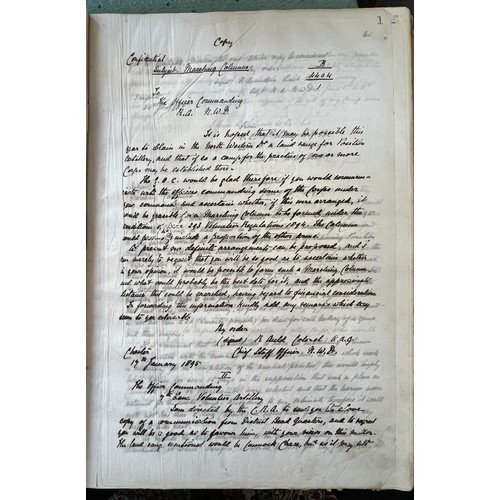 1
Copy
Confidential
Subject. Marching Columns
B
4404
1
To
The Officer Commanding
R.A. N.W.D.
It is hoped that it may be possible this
year to obtain in the North Western Dt a land range for Position
Artillery, and that if so a camp for the practice of one or more
Corps may be established there.
The G.O.C. would be glad therefore if you would communi-
cate with the officers commanding some of the Corps under
your command and ascertain whether, if this were arranged, it
would be possible for a Marching Column to be formed under the
conditions of para 293 Volunteer Regulations 1894. The Column
would include a proportion of the other arms.
At present no definite arrangements can be proposed, and I
am merely to request that you will be good as to ascertain whether
in your opinion, it would be possible to form such a Marching Column
and what would probably be the best date for it, and the approximate
distance that could be marched, paying regard to financial consideration
In forwarding this information kindly add any remarks which may
seem to you desirable.
By order
(signed) R Auld Colonel, A.A.G.
Chief Staff Officer, N.W.D.
Chester
17th January 1895
II
The Officer Commanding
7th Lanc Volunteer Artillery
I am directed by the C.R.A. to send you the above
copy of a communication from District Head Quarters, and to request
you will be so good as to favour him, with your views on this matter.
The land range mentioned would be Cannock Chase, but as it may